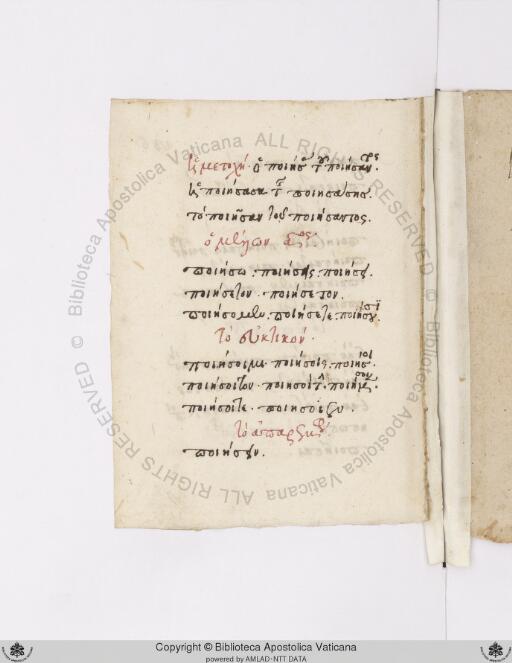 ἡ μετοχή. ὁ ποιήσας τοῦ ποιήσαντος.
ἡ ποιήσασα τῆς ποιησάσης.
τὸ ποιῆσαν τοῦ ποιήσαντος.
ὁ μέλλων
ποιήσω. ποιήσεις. ποιήσει.
ποιήσετον. ποιήσετον.
ποιήσομεν. ποιήσετε. ποιήσουσι
τὸ εὐκτικόν.
ποιήσοιμι. ποιήσοις. ποιήσοι
ποιήσοιτον. ποιησοίτην. ποιήσοιμεν.
ποιήσοιτε. ποιήσοιεν.
τὸ ἀπαρέμφατον
ποιήσειν.
© Biblioteca Apostolica Vaticana ALL RIGHTS RESERVED
© Biblioteca Apostolica Vaticana ALL RIGHTS RESERVED
Copyright © Biblioteca Apostolica Vaticana
powered by AMLAD-NTT DATA